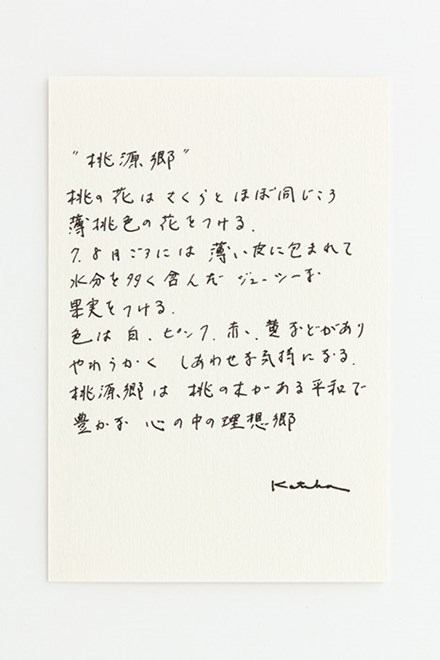 "桃源郷"
桃の花は さくらと ほぼ同じころ
薄桃色の花をつける.
7.8月ごろには 薄い皮に包まれて
水分を多く含んだ ジューシーな
果実をつける.
色は 白. ピンク. 赤. 黄などがあり
やわらかく しあわせな気持になる.
桃源郷は 桃の木がある平和で
豊かな 心の中の理想郷